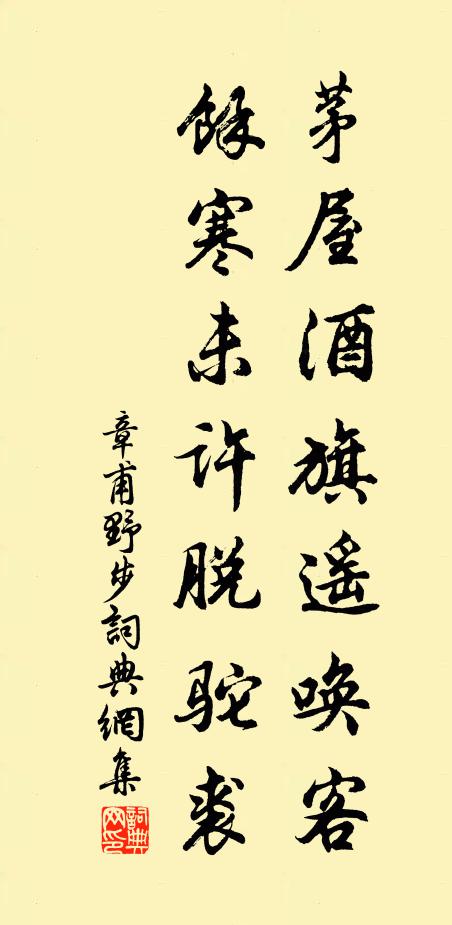 茅屋酒旗遥唤客
馀寒未许脱驼裘
章甫野步詞典網集
詞典网印